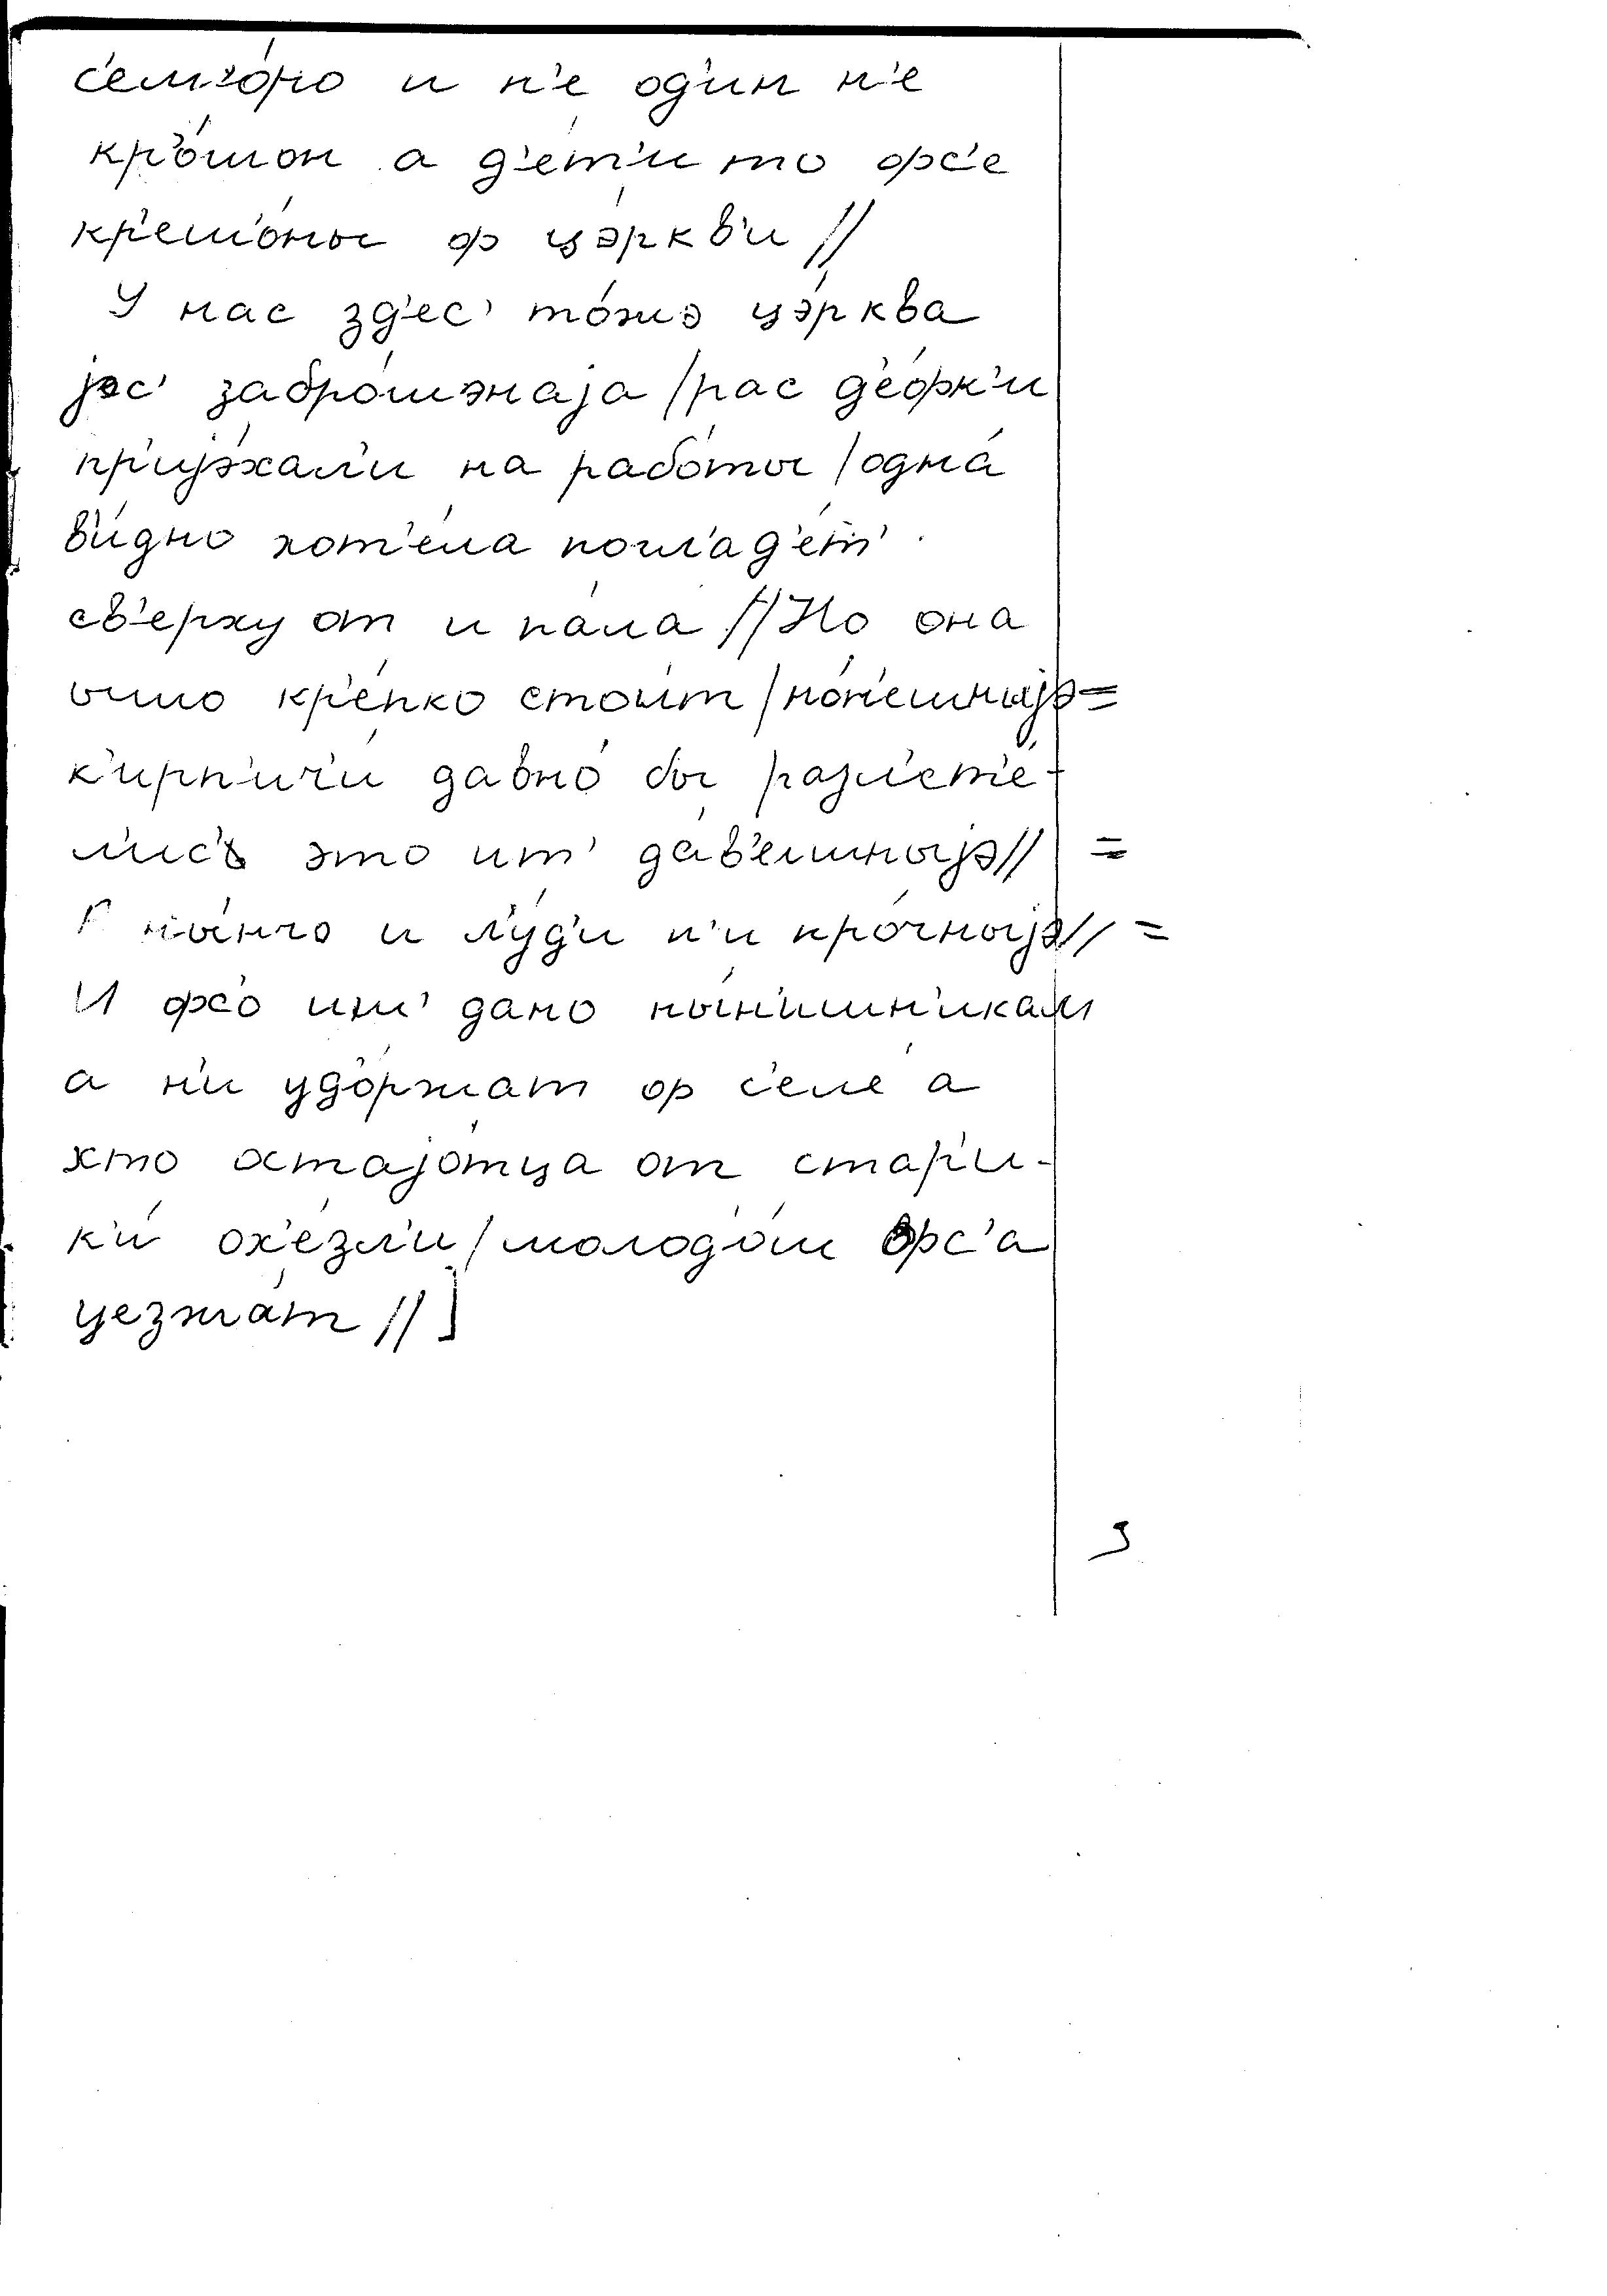 с'ем'о́ро и н'е од'ин н'е
кр'о́шон а д'е́т'и то фс'е
кр'ешо́ны ф цэ́ркв'и //
У нас зд'ес' то́жэ цэ́рква
јэс' забро́шэнаја / рас д'е́фк'и
пр'ијэ́хал'и на рабо́ты / одна́
в'и́дно хот'е́ла погл'ад'е́т'
св'е́рху от и па́ла // Но она
ышо кр'е́пко стои́т / но́н'ешныјэ =
к'ирп'ич'и́ давно́ бы разл'ет'е́-
лис' это ит' да́в'ешныјэ // =
ны́нчэ и л'у́д'и н'и про́чныјэ // =
И фс'о им' дано ны́н'ишн'икам
а н'и удэ́ржат ф с'ел'е́ а
хто остајо́тца от стар'и-
к'и́ ох'е́зл'и / молодо́ш фс'а
уезжа́т // ]